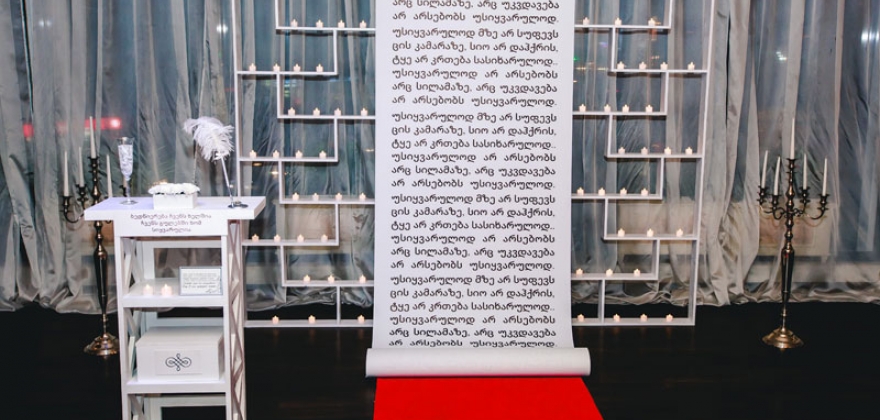 არც სილამაზე, არც უკვდავება
არ არსებობს უსიყვარულოდ.
უსიყვარულოდ მზე არ სუფევს
ცის კამარაზე, სიო არ დაჰქრის,
ტყე არ კრთება სასიხარულოდ..
უსიყვარულოდ არ არსებობს
არც სილამაზე, არც უკვდავება
არ არსებობს უსიყვარულოდ.
უსიყვარულოდ მზე არ სუფევს
ცის კამარაზე, სიო არ დაჰქრის,
ტყე არ კრთება სასიხარულოდ..
უსიყვარულოდ არ არსებობს
არც სილამაზე, არც უკვდავება
არ არსებობს უსიყვარულოდ.
უსიყვარულოდ მზე არ სუფევს
ცის კამარაზე, სიო არ დაჰქრის,
ტყე არ კრთება სასიხარულოდ..
უსიყვარულოდ არ არსებობს
არც სილამაზე, არც უკვდავება
არ არსებობს უსიყვარულოდ.
უსიყვარულოდ მზე არ სუფევს
ცის კამარაზე, სიო არ დაჰქრის,
ტყე არ კრთება სასიხარულოდ..
უსიყვარულოდ არ არსებობს
არც სილამაზე, არც უკვდავება
არ არსებობს უსიყვარულოდ.
ბედნიერება ჩვენს ხელშია
ჩვენს გულებში ხომ
სიყვარულია